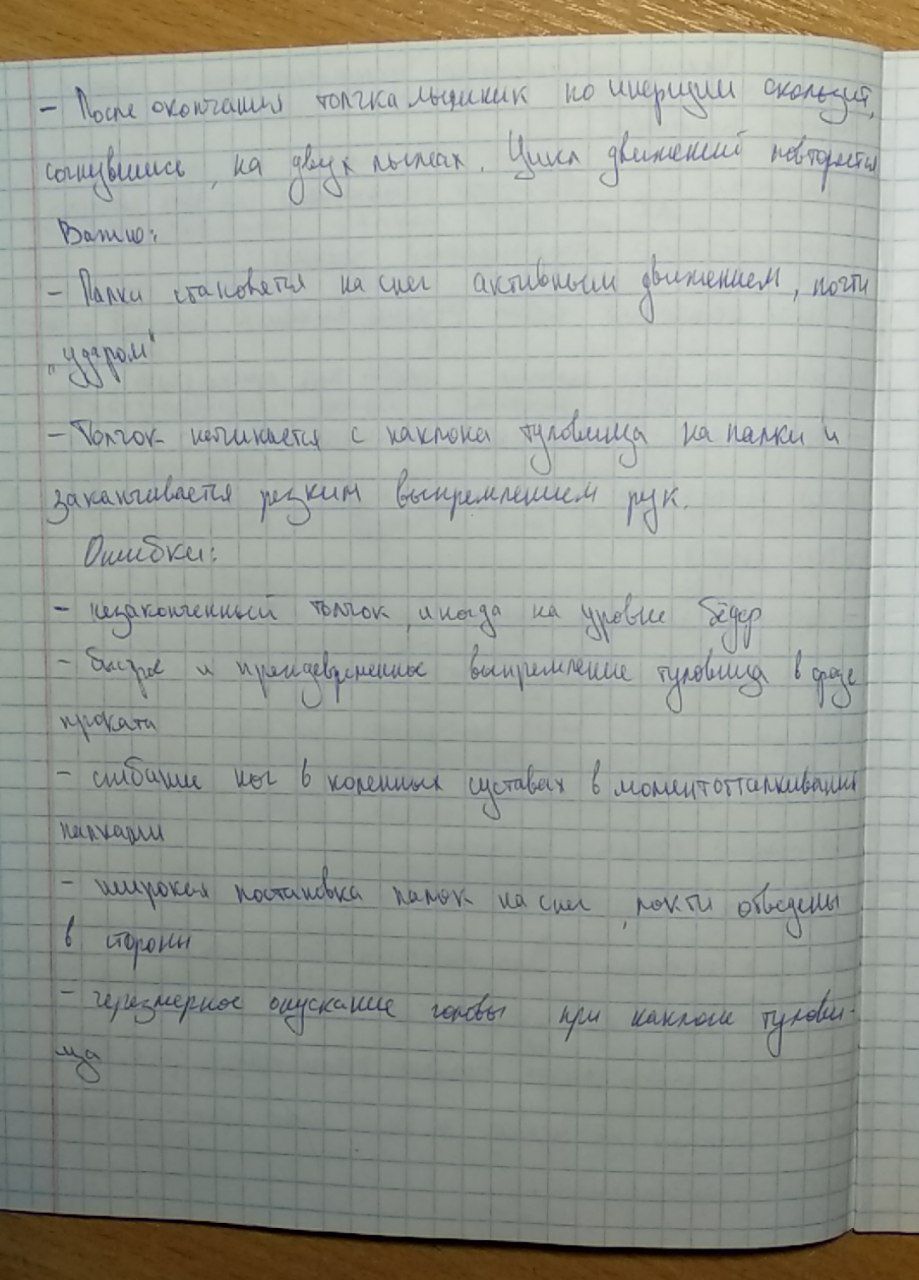 - После окончания толчка лыжник по инерции скользит,
согнувшись, на двух лыжах. Цикл движений повторяется
Важно:
- Палки становятся на снег активным движением, почти
"ударом"
- Толчок начинается с наклона туловища на палки и
заканчивается резким выпремлением рук.
Ошибки:
- незаконченный толчок, иногда на уровне бёдер
- быстрое и преждевременное выпремление туловища в фазе
проката
- сгибание ног в коленных суставах в момент отталкивания
палками
- широкая постановка палок на снег, локти отведены
в стороны
- черезмерное опускание головы при наклоне тулови-
ща